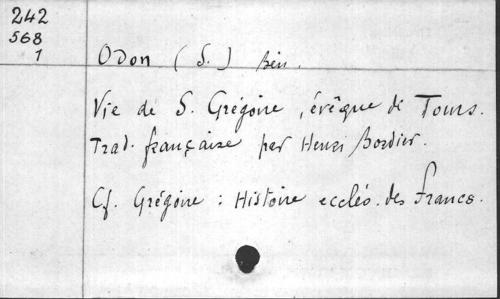 242
568
1
Odon (S.) Bén.
Vie de S. Grégoire, évêque de Tours.
Trad. française par Henri Bordier.
Cf. Grégoire : Histoire ecclés. des Francs.